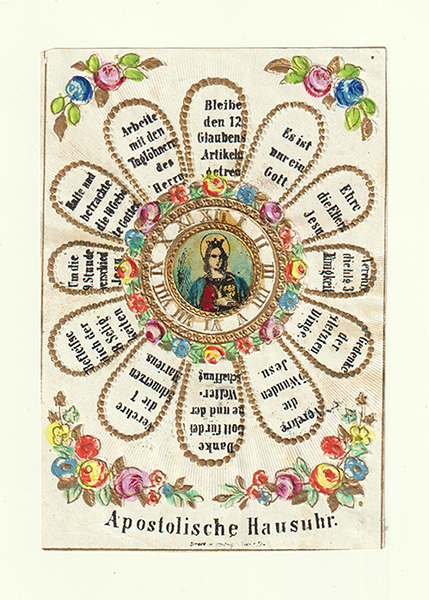 Bleibe
den 12
Glaubens
Artikeln
getreu
Es ist
nur ein
Gott
Ehre
die Eltern
Jesu
die hl. 3
Gedenke
der
letzten
Dinge.
Verehre
die
Wunden
Jesu
Danke
Gott für
und der
Welter-
schaffung
Verehre
die 7
Schmerzen
Mariens
Befleise
dich der
8 Selig
keiten
Um die
9. Stunde
verschied
Halte und
betrachte
die 10 Gebo
te Gottes
Arbeite
mit den
Taglöhnern
des
Herrn
XII
I
II
III
VI
Apostolische Hausuhr.